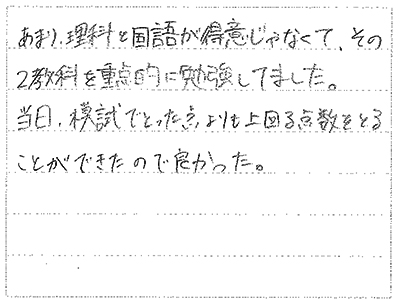 あまり、理科と国語が得意じゃなくて、その
2教科を重点的に勉強してました。
当日、模試でとった点よりも上回る点数をとる
ことができたので良かった。